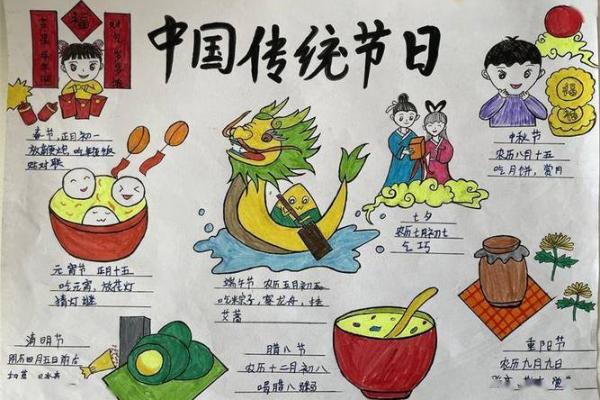 中国传统节日
福
春节,正月初一
放鞭炮,吃年夜饭
贴对联
中秋节
农历八月十五
吃月饼,赏月
福
福
七夕
农历七月初七
乞巧
元宵节 正月十五
吃元宵,放花灯
猜灯谜
端午节 农历五月初五
吃粽子,赛龙舟,挂
艾蒿
清明节
阴历四月五日前后
腊八节
农历十二月初八
喝腊八粥
重阳节
农历九月九日